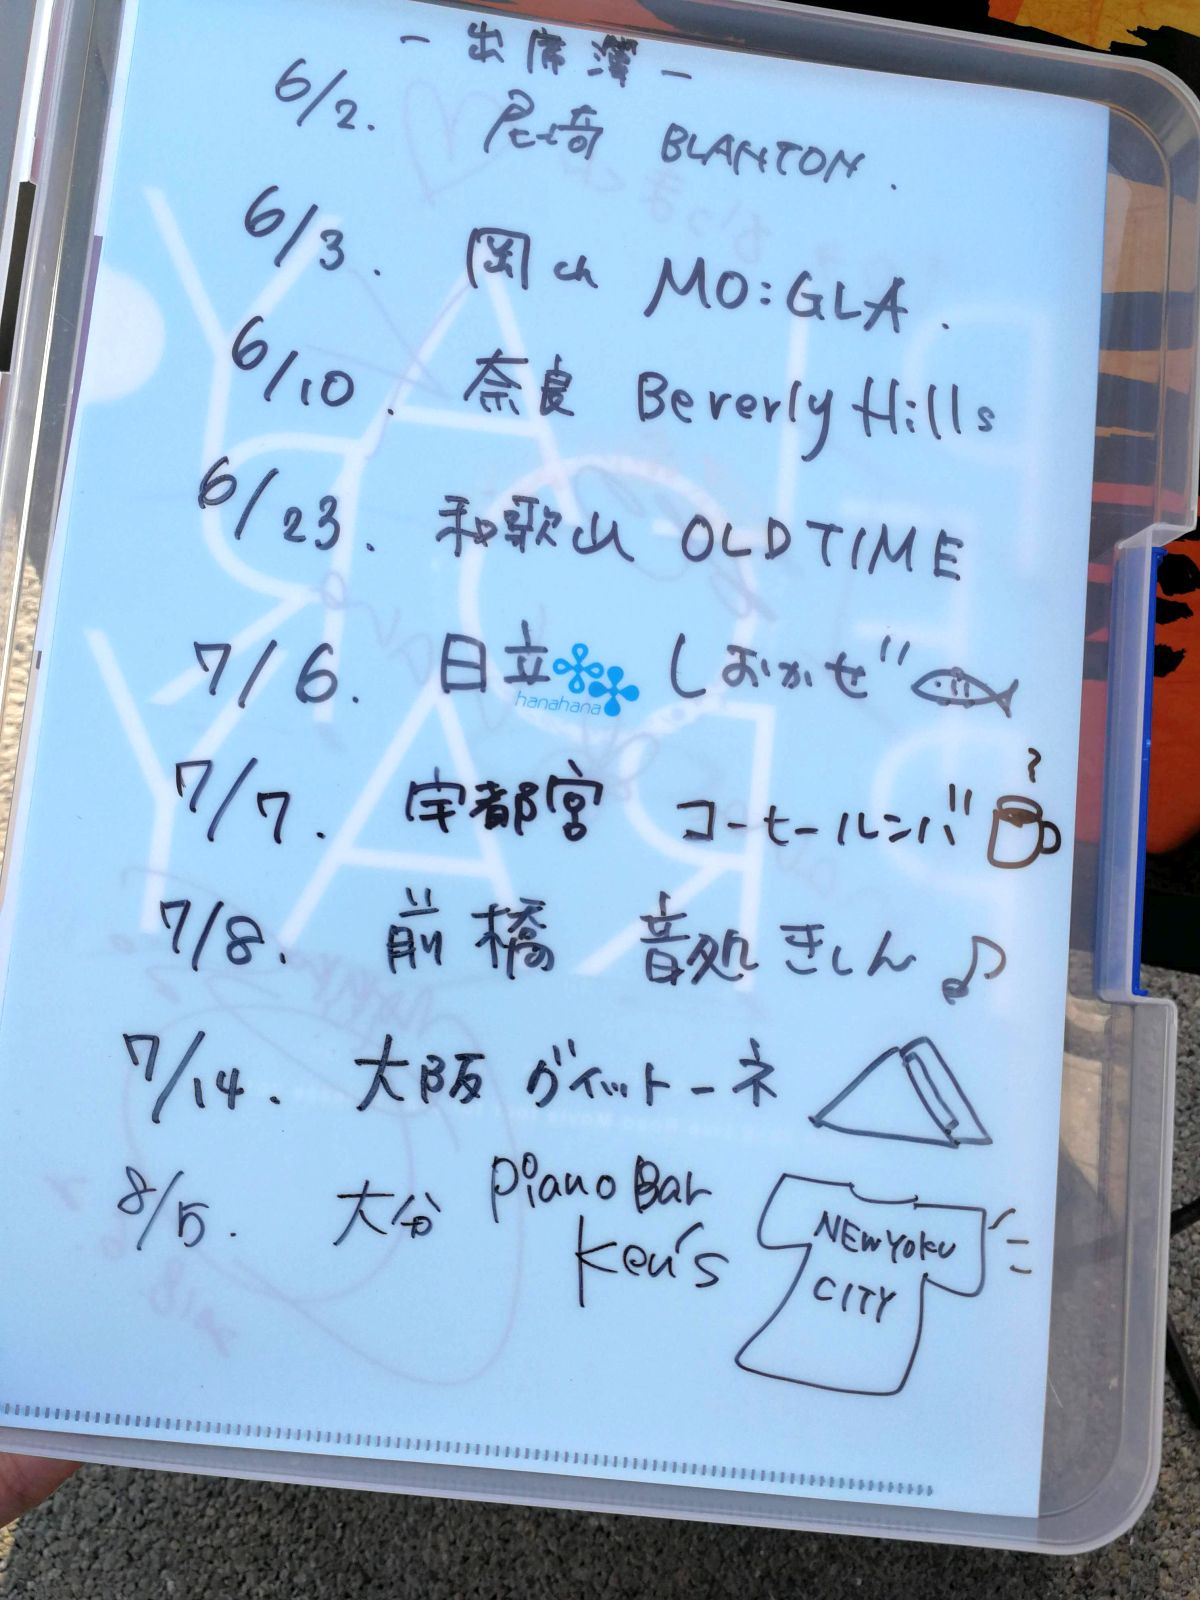 －出席簿－
6/2. 尼崎 BLANTON.
6/3. 岡山 MO:GLA.
6/10. 奈良 Beverly Hills
6/23. 和歌山 OLD TIME
7/6. 日立 しおかぜ
hanahana
7/7. 宇都宮 コーヒールンバ
7/8. 前橋 音処きしん♪
7/14. 大阪 ヴィットーネ
8/5. 大分 Piano Bar
Ken's
NEW YOKU
CITY